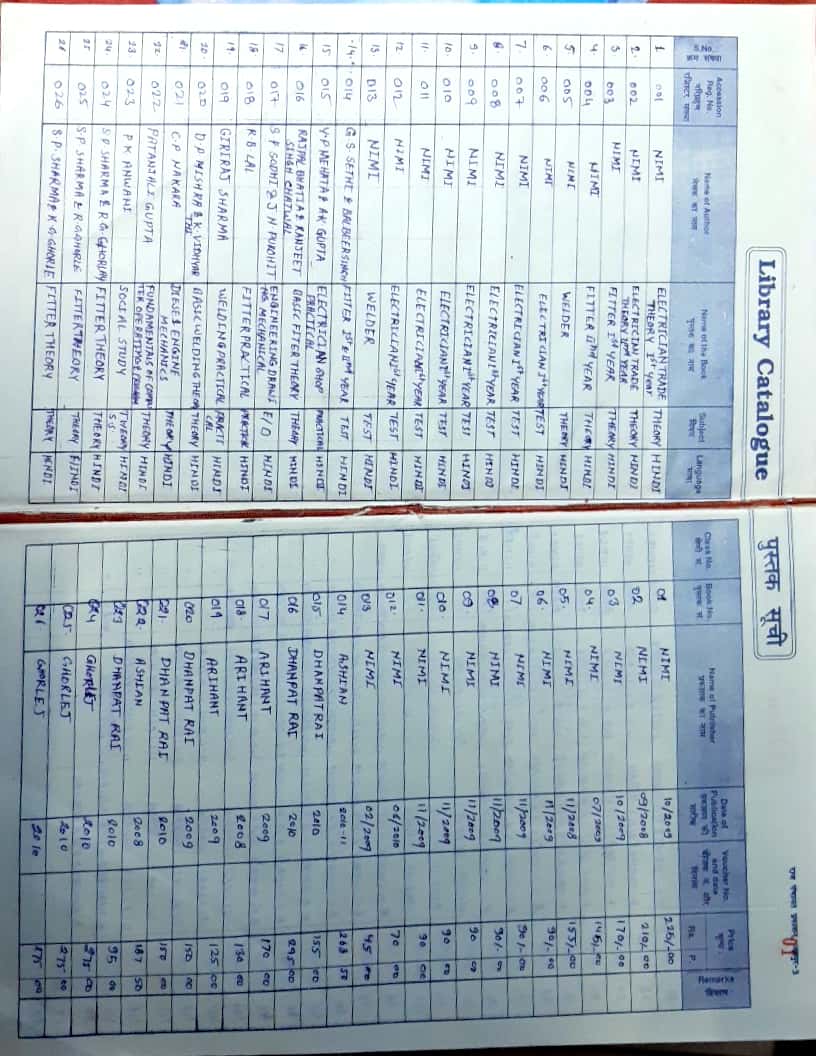 Library Catalogue पुस्तक सूची
01
S.No. Accession Reg. No. Name of Author Name of the Book Subject Language Class No. Book No. Name of Publisher Date of Publication Voucher No. and date Price Rs. P. Remarks
क्रम संख्या लेखक का नाम पुस्तक का नाम विषय भाषा
1. 001 NIMI ELECTRICIAN TRADE THEORY Ist year THEORY HINDI 01 NIMI 10/2009 225/-00
2. 002 NIMI ELECTRICIAN TRADE THEORY IInd YEAR THEORY HINDI 02 NIMI 09/2008 210/-00
3 003 NIMI FITTER Ist YEAR THEORY HINDI 03 NIMI 10/2009 170/-00
4. 004 NIMI FITTER IInd YEAR THEORY HINDI 04. NIMI 07/2009
5. 005 NIMI WELDER THEORY HINDI 05. NIMI 11/2008 155/-00
6. 006 NIMI ELECTRICIAN Ist YEAR TEST HINDI 06. NIMI 11/2009 90/-00
7. 007 NIMI ELECTRICIAN Ist YEAR TEST HINDI 07 NIMI 11/2009 90/-00
8. 008 NIMI ELECTRICIAN Ist YEAR TEST HINDI 08. NIMI 11/2009 90/-00
9. 009 NIMI ELECTRICIAN Ist YEAR TEST HINDI 09. NIMI 11/2009 90 00
10. 010 NIMI ELECTRICIAN Ist YEAR TEST HINDI 010. NIMI 11/2009 90 00
11. 011 NIMI ELECTRICIAN Ist YEAR TEST HINDI 011. NIMI 11/2009 90 00
12 012 NIMI ELECTRICIAN Ist YEAR TEST HINDI 012. NIMI 06/2010 70 00
13. 013 NIMI WELDER TEST HINDI 013 NIMI 02/2009 45 00
14. 014 G S SETHI & BALBEER SINGH FITTER Ist & IInd YEAR TEST HINDI 014 ASHIAN 2010-11 263 50
15 015 Y.P MEHATA & AK GUPTA ELECTRICIAN SHOP PRACTICAL PRACTICAL HINDI 015 DHANPAT RAI 2010 155 00
16 016 RAJPAL BHATIA & RANJEET SINGH CHATWAL BASIC FITER THEORY THEORY HINDI 016 DHANPAT RAI 2010 295 00
17 017 S P SODHI & J N PUROHIT ENGINEERING DRAWI NG MECHANICAL E/D HINDI 017 ARIHANT 2009 170 00
18 018 R B LAL FITTER PRACTICAL HINDI 018. ARIHANT 2008 130 00
19. 019 GIRIRAJ SHARMA WELDING PRACTICAL PRACTI CAL HINDI 019 ARIHANT 2009 125 00
20. 020 D.P MISHRA & K. VIDHYAR THI BASIC WELDING THEORY THEORY HINDI 020 DHANPAT RAI 2009 150 00
21 021 C.P NAKARA DIESEL ENGINE MECHANICS THEORY HINDI 021. DHANPAT RAI 2010 150 00
22. 022 PATANJALI GUPTA THEORY HINDI 022. ASHIAN 2008 187 50
23. 023 P.K ANWANI SOCIAL STUDY THEORY S.S HINDI 023 DHANPAT RAI 2010 95 00
24. 024 S P SHARMA & R G. GHORLAY FITTER THEORY THEORY HINDI 024 GHORLEJ 2010 275 00
25 025 S P SHARMA & R G GHORLE FITTER THEORY THEORY HINDI 025. GHORLEJ 2010 275 00
26 026 S P. SHARMA & K G. GHORLE FITTER THEORY THEORY HINDI 026 GHORLEJ 2010 275 00